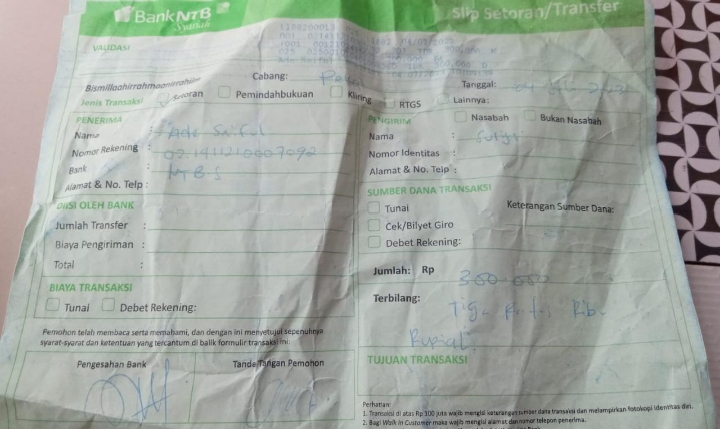 Bank NTB
Syariah
Slip Setoran/Transfer
VALIDASI
Bismillaahirrahmaanirrahiim
Cabang:
Tanggal:
Jenis Transaksi
Setoran
Pemindahbukuan
Kliring
RTGS
Lainnya:
PENERIMA
PENGIRIM
Nasabah
Bukan Nasabah
Nama :
Nama : Surya
Nomor Rekening :
Nomor Identitas :
Bank : NTB S
Alamat & No. Telp :
Alamat & No. Telp :
SUMBER DANA TRANSAKSI
DIISI OLEH BANK
Tunai
Keterangan Sumber Dana:
Jumlah Transfer :
Cek/Bilyet Giro
Biaya Pengiriman :
Debet Rekening:
Total :
Jumlah: Rp 300.000
BIAYA TRANSAKSI
Terbilang: Tiga Ratus Ribu
Rupiah
Tunai
Debet Rekening:
Pemohon telah membaca serta memahami, dan dengan ini menyetujui sepenuhnya
syarat-syarat dan ketentuan yang tercantum di balik formulir transaksi ini:
TUJUAN TRANSAKSI
Pengesahan Bank
Tanda Tangan Pemohon
Perhatian:
1. Transaksi di atas Rp 100 juta wajib mengisi keterangan sumber dana transaksi dan melampirkan fotokopi identitas diri.
2. Bagi Walk In Customer maka wajib mengisi alamat dan nomor telepon penerima.